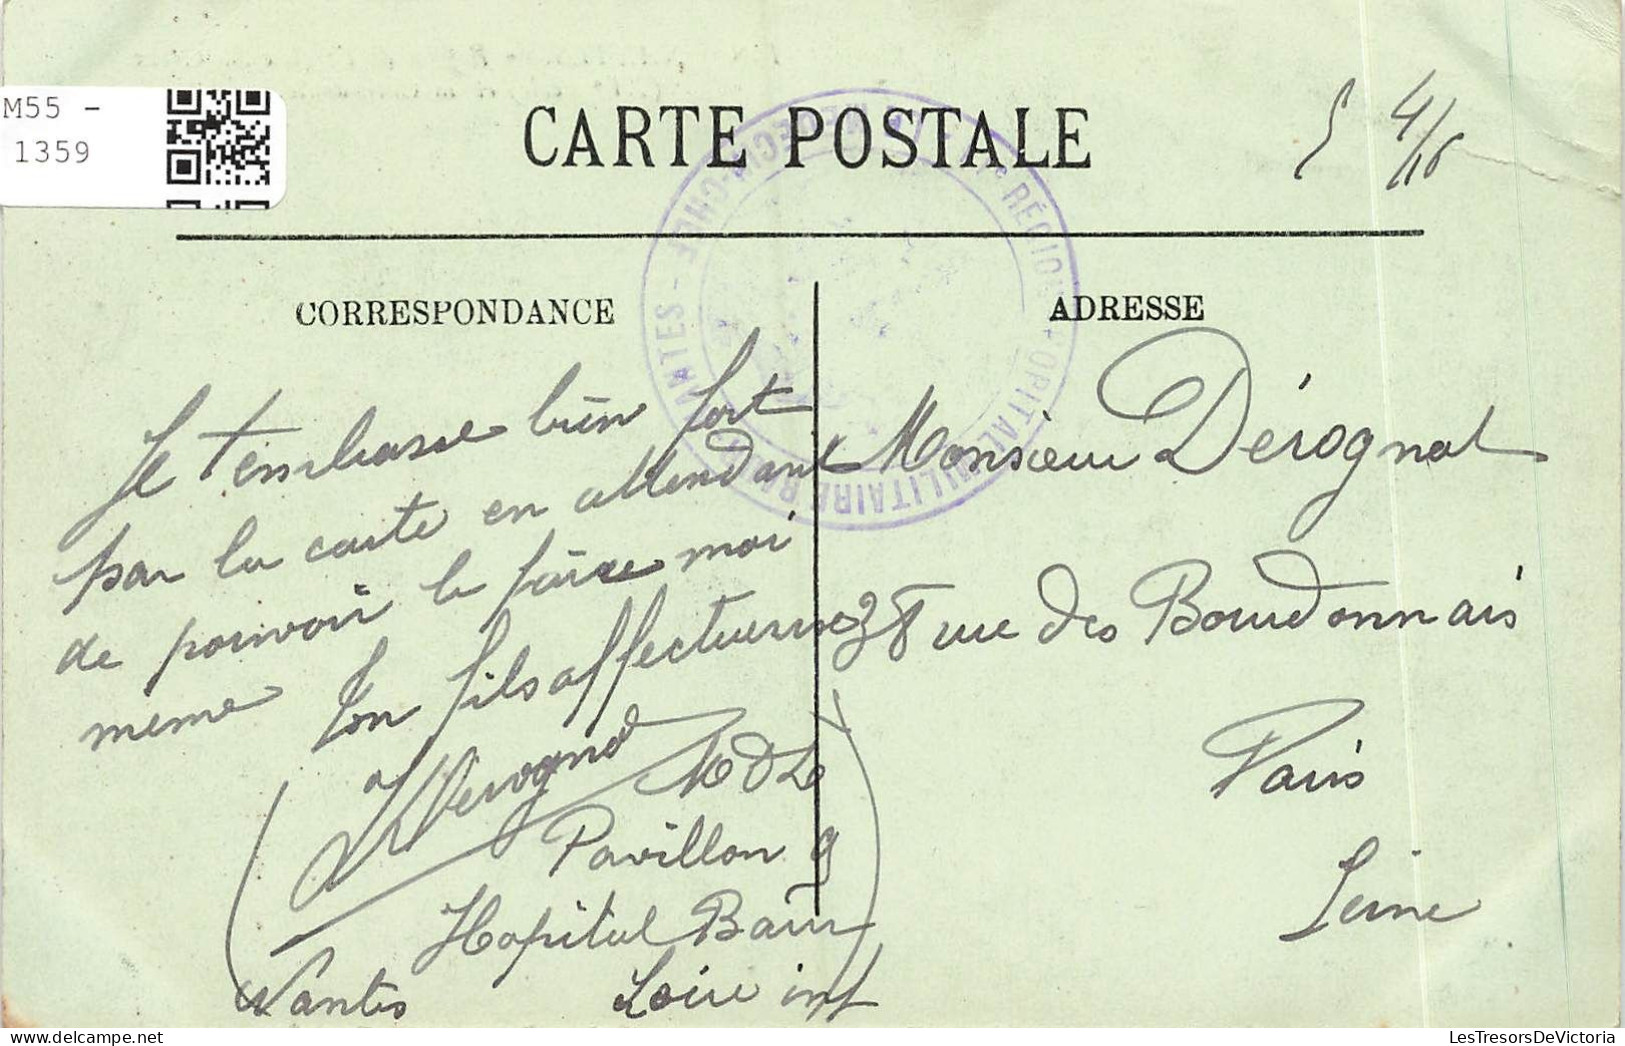 M55 -
1359
CARTE POSTALE
4/16
CORRESPONDANCE
ADRESSE
RÉGION HOPITAL MILITAIRE NANTES - MÉDECIN-CHEF
Je t'embrasse bien fort
par la carte en attendant
de pouvoir le faire moi
meme Ton fils affectueux
Dérognat MDL
Pavillon 9
Hopital Baur
Nantes Loire inf
Monsieur Dérognat
38 rue des Bourdonnais
Paris
Seine
LesTresorsDeVictoria